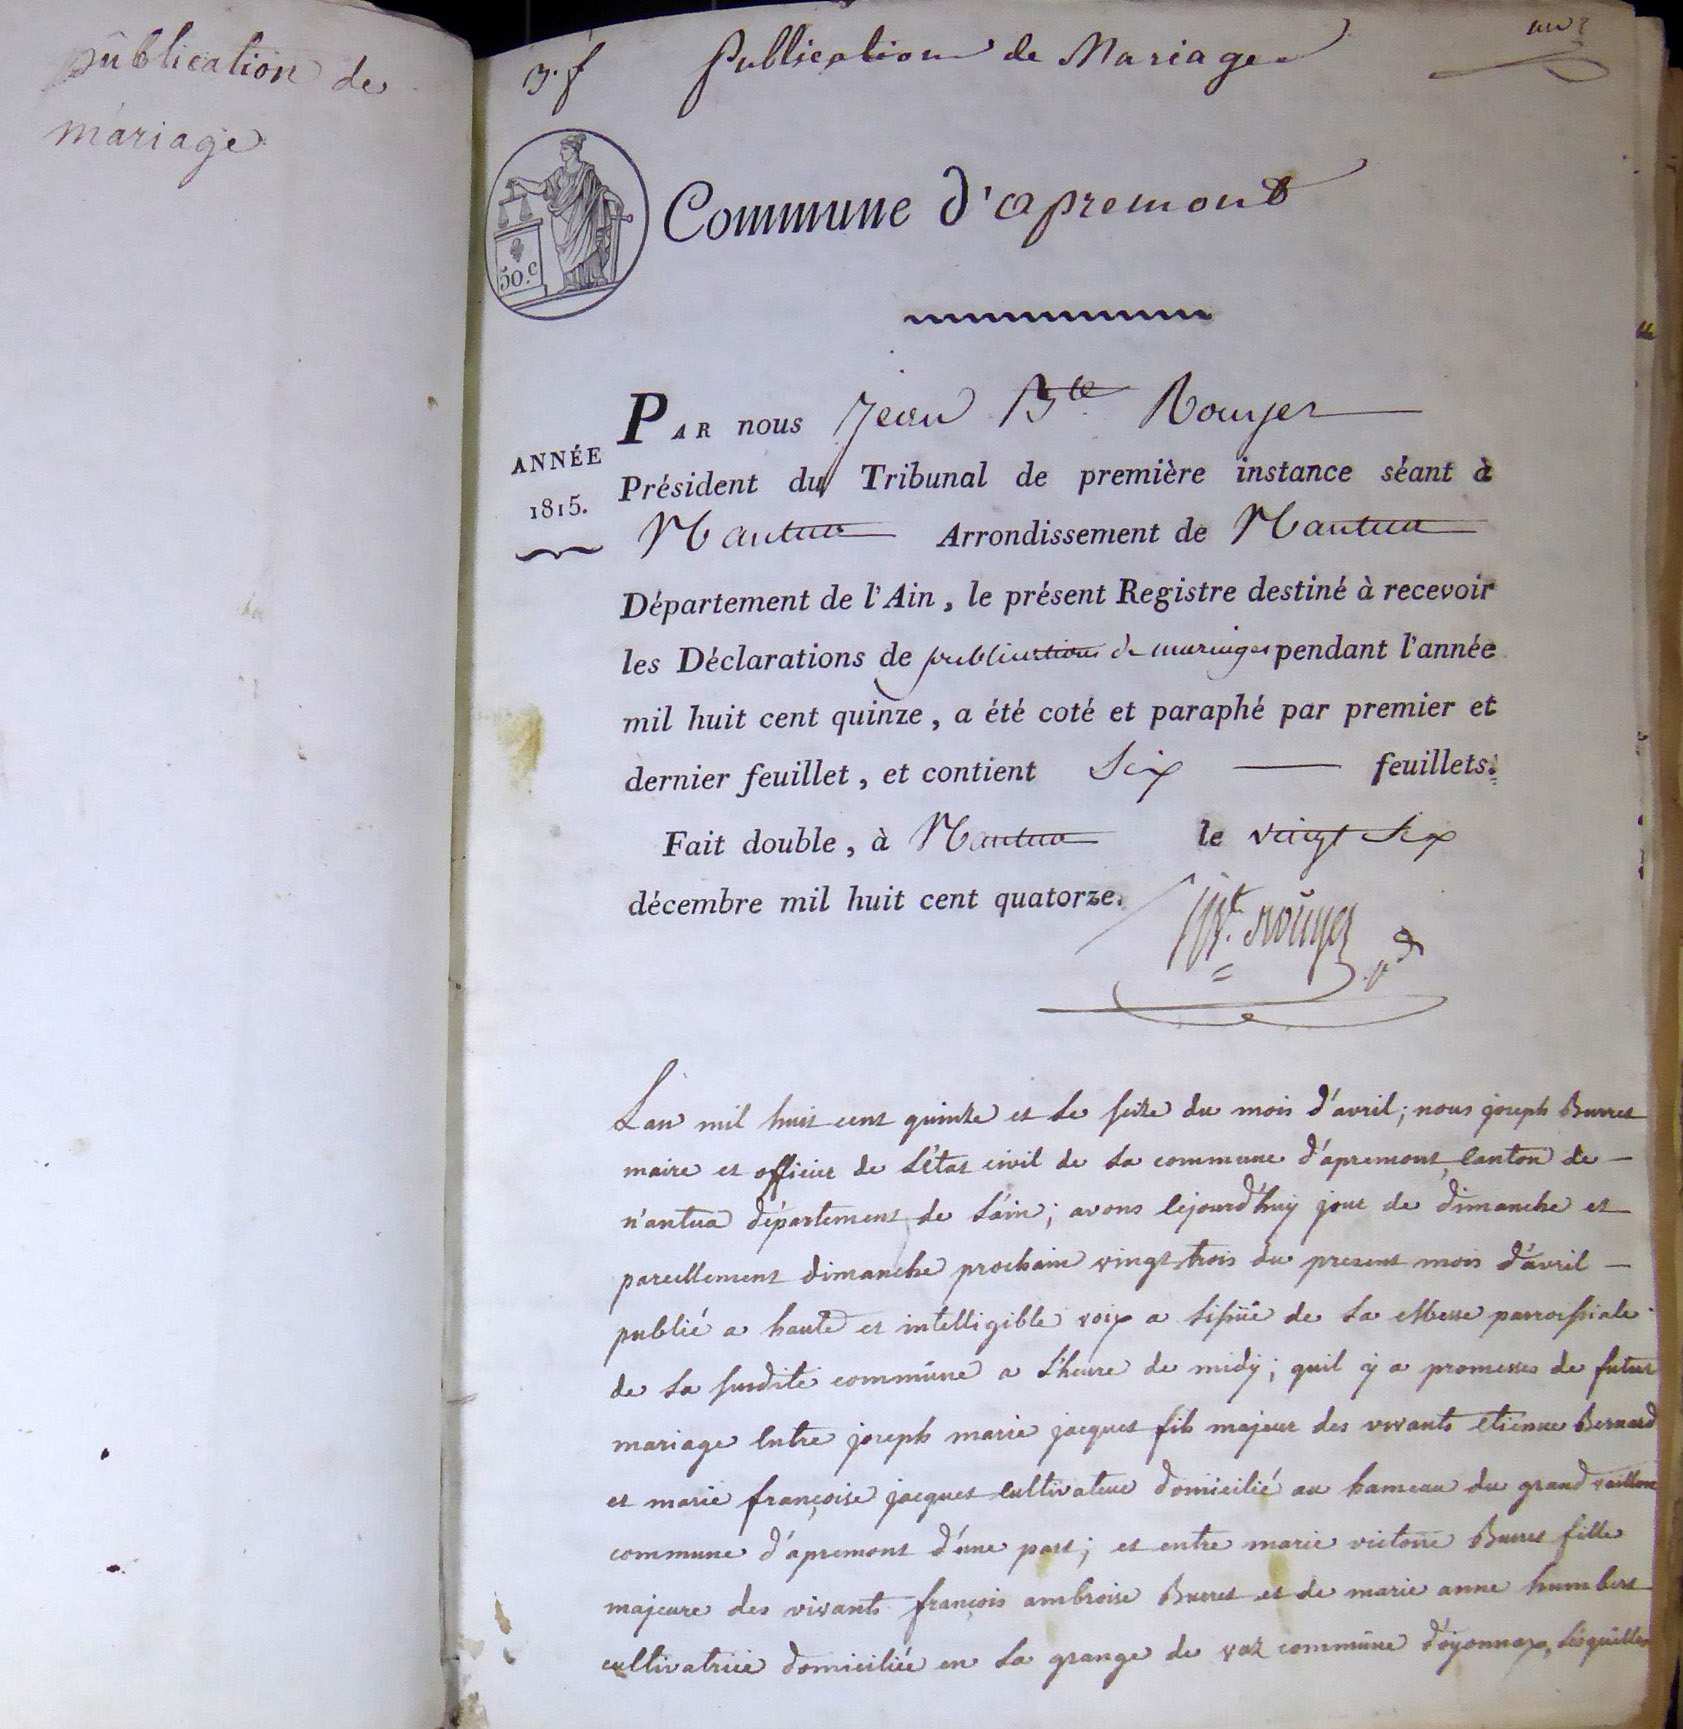 publication de
mariage
3. f
Publication de Mariage
Commune d'apremont
50.c
ANNÉE
1815.
PAR nous Jean Bte Rouyer
Président du Tribunal de première instance séant à
Nantua Arrondissement de Nantua
Département de l'Ain, le présent Registre destiné à recevoir
les Déclarations de publications de mariages pendant l'année
mil huit cent quinze, a été coté et paraphé par premier et
dernier feuillet, et contient six feuillets.
Fait double, à Nantua le vingt six
décembre mil huit cent quatorze.
Rouyer
Lan mil huit cent quinze et le seize du mois d'avril; nous joseph Burret
maire et officier de L'état civil de la commune d'apremont canton de
nantua département de L'ain; avons cejourd'huy jour de dimanche et
pareillement dimanche prochain vingt trois du present mois d'avril
publié a haute et intelligible voix a l'issüe de la Messe parroissiale
de la susdite commüne a l'heure de midy; quil y a promesses de futur
mariage entre joseph marie jacquet fils majeur des vivants etienne Bernard
et marie françoise jacquet cultivateur domicilié au hameau du grand vaillon
commune d'apremont d'une part; et entre marie victoire Burret fille
majeure des vivants françois ambroise Burret et de marie anne humbert
cultivatrice domiciliée en la grange de vaz commüne d'oyonnax, lesquelles